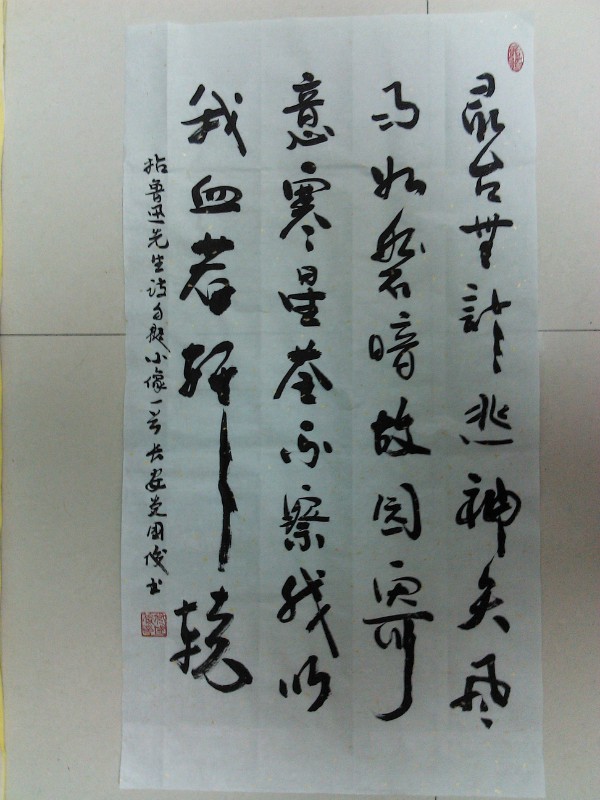 灵台無計逃神矢风
雨如磐暗故园寄
意寒星荃不察我以
我血荐轩辕
拈鲁迅先生诗自题小像一首 长安党国俊书